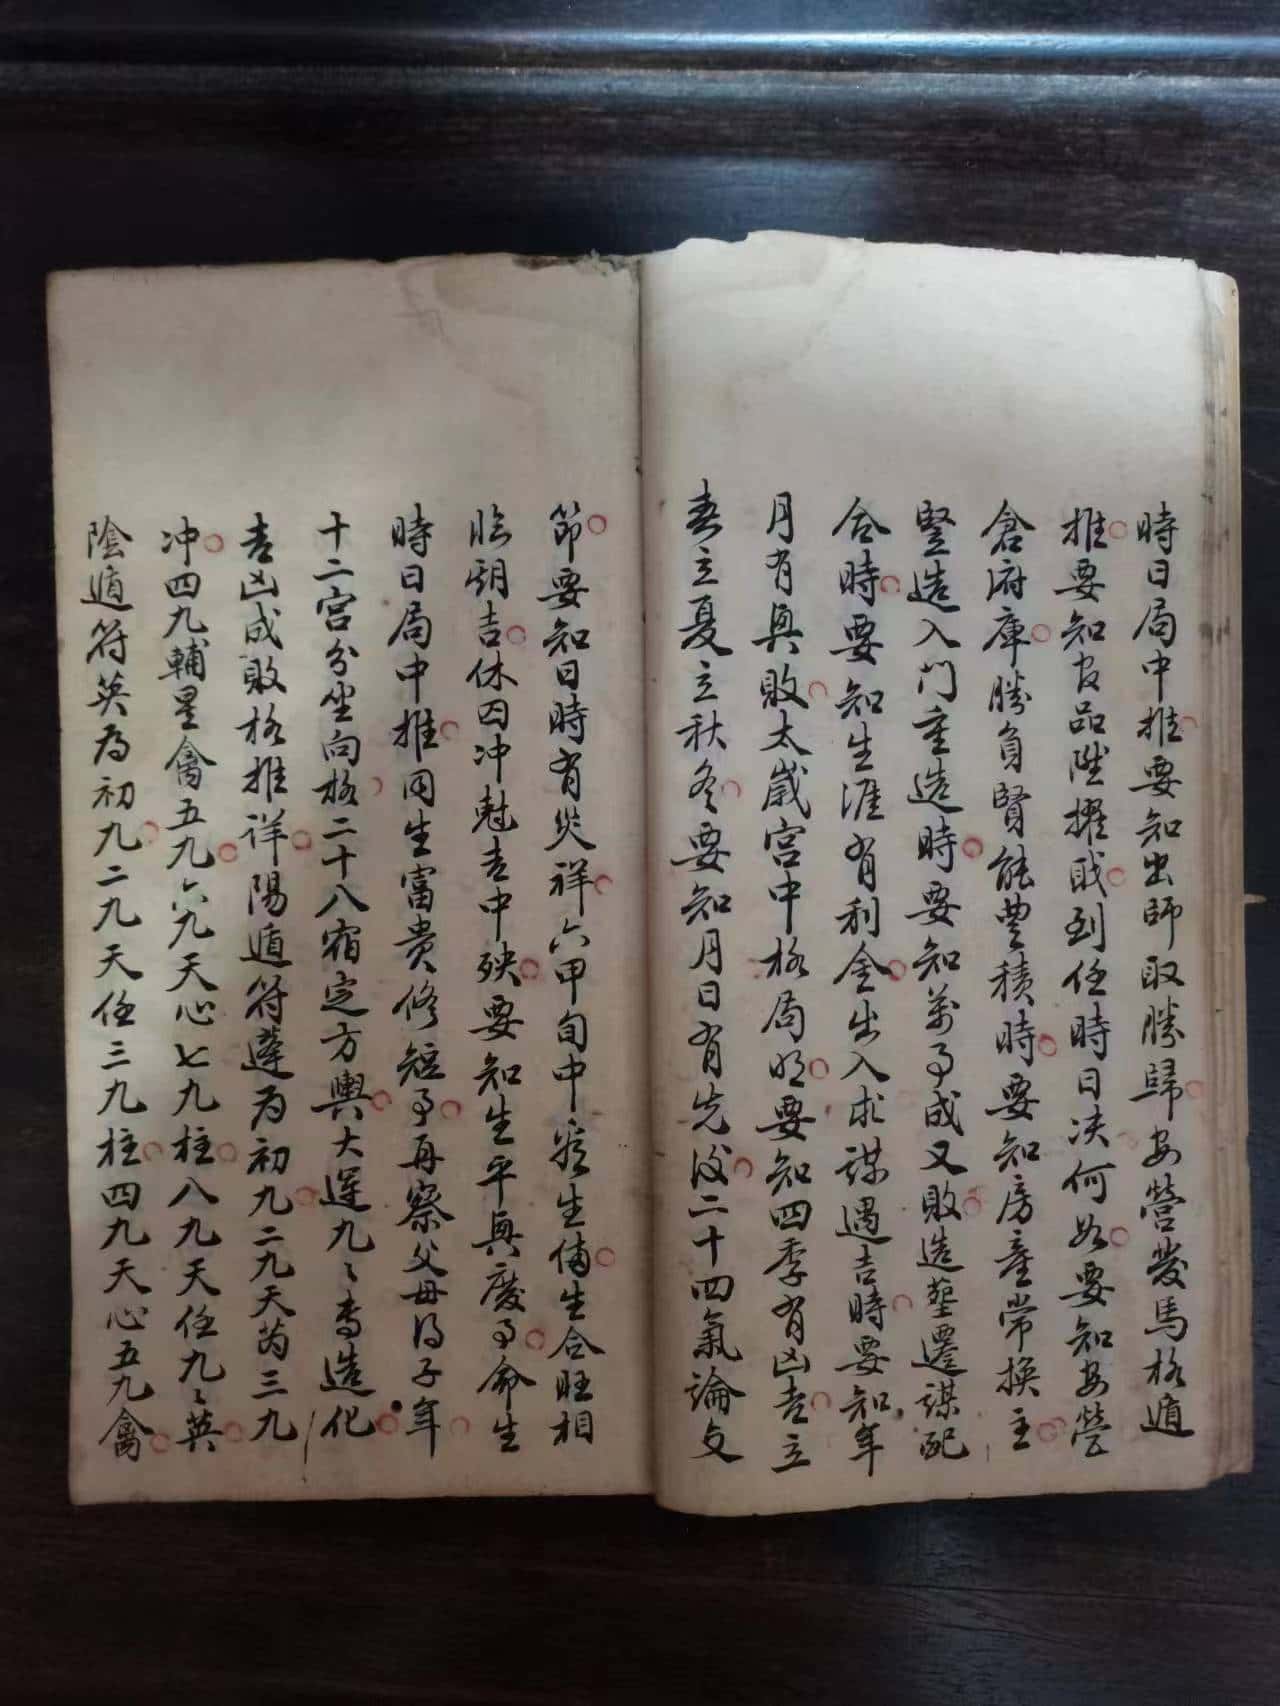 時日局中推要知出師取勝歸安營發馬格遁
推要知官品陞擢哉到任時日决何如要知安營
倉府庫勝負賢能豊積時要知房産常換主
竪造入門重造時要知萬事成又敗造塟遷謀配
合時要知生涯有利金出入求謀遇吉時要知年
月有興敗太歲宮中格局明要知四季有凶吉立
春立夏立秋冬要知月日有先後二十四氣論交
節要知日時有災祥六甲旬中察生備生合旺相
臨朝吉休囚冲尅吉中殃要知生平興廢事命生
時日局中推用生富貴修短事再察父母得子年
十二宮分坐向格二十八宿定方輿大運九〻専造化
吉凶成敗格推詳陽遁符蓬为初九二九天芮三九
冲四九輔星禽五九六九天心七九柱八九天任九〻英
陰遁符英为初九二九天任三九柱四九天心五九禽